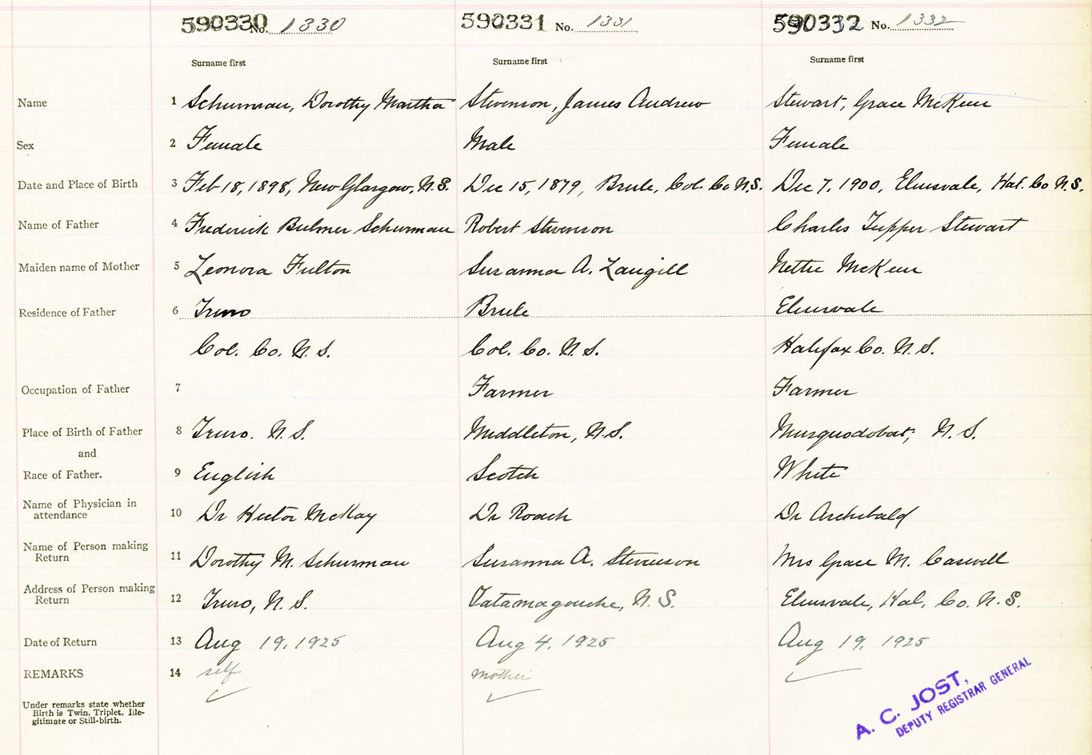 590330 No. 1330 590331 No. 1331 590332 No. 1332
Surname first Surname first Surname first
Name 1 Schurman, Dorothy Martha Stevenson, James Andrew Stewart, Grace McKeen
Sex 2 Female Male Female
Date and Place of Birth 3 Feb 18, 1898, New Glasgow, N.S. Dec 15, 1879, Brule, Col. Co N.S. Dec 7, 1900, Elmsvale, Hal. Co N.S.
Name of Father 4 Frederick Bulmer Schurman Robert Stevenson Charles Tupper Stewart
Maiden name of Mother 5 Leonora Fulton Susanna A. Langill Nettie McKeen
Residence of Father 6 Truro Brule Elmsvale
Col. Co. N.S. Col. Co. N.S. Halifax Co. N.S.
Occupation of Father 7 Farmer Farmer
Place of Birth of Father 8 Truro. N.S. Middleton, N.S. Musquodobit, N.S.
and
Race of Father. 9 English Scotch White
Name of Physician in
attendance 10 Dr Hector McKay Dr Roach Dr Archibald
Name of Person making
Return 11 Dorothy M. Schurman Susanna A. Stevenson Mrs Grace M. Caswell
Address of Person making
Return 12 Truro, N.S. Tatamagouche, N.S. Elmsvale, Hal. Co. N.S.
Date of Return 13 Aug 19, 1925 Aug 4, 1925 Aug 19, 1925
REMARKS 14 self mother
Under remarks state whether
Birth is Twin, Triplet, Ille-
gitimate or Still-birth.
A. C. JOST,
DEPUTY REGISTRAR GENERAL